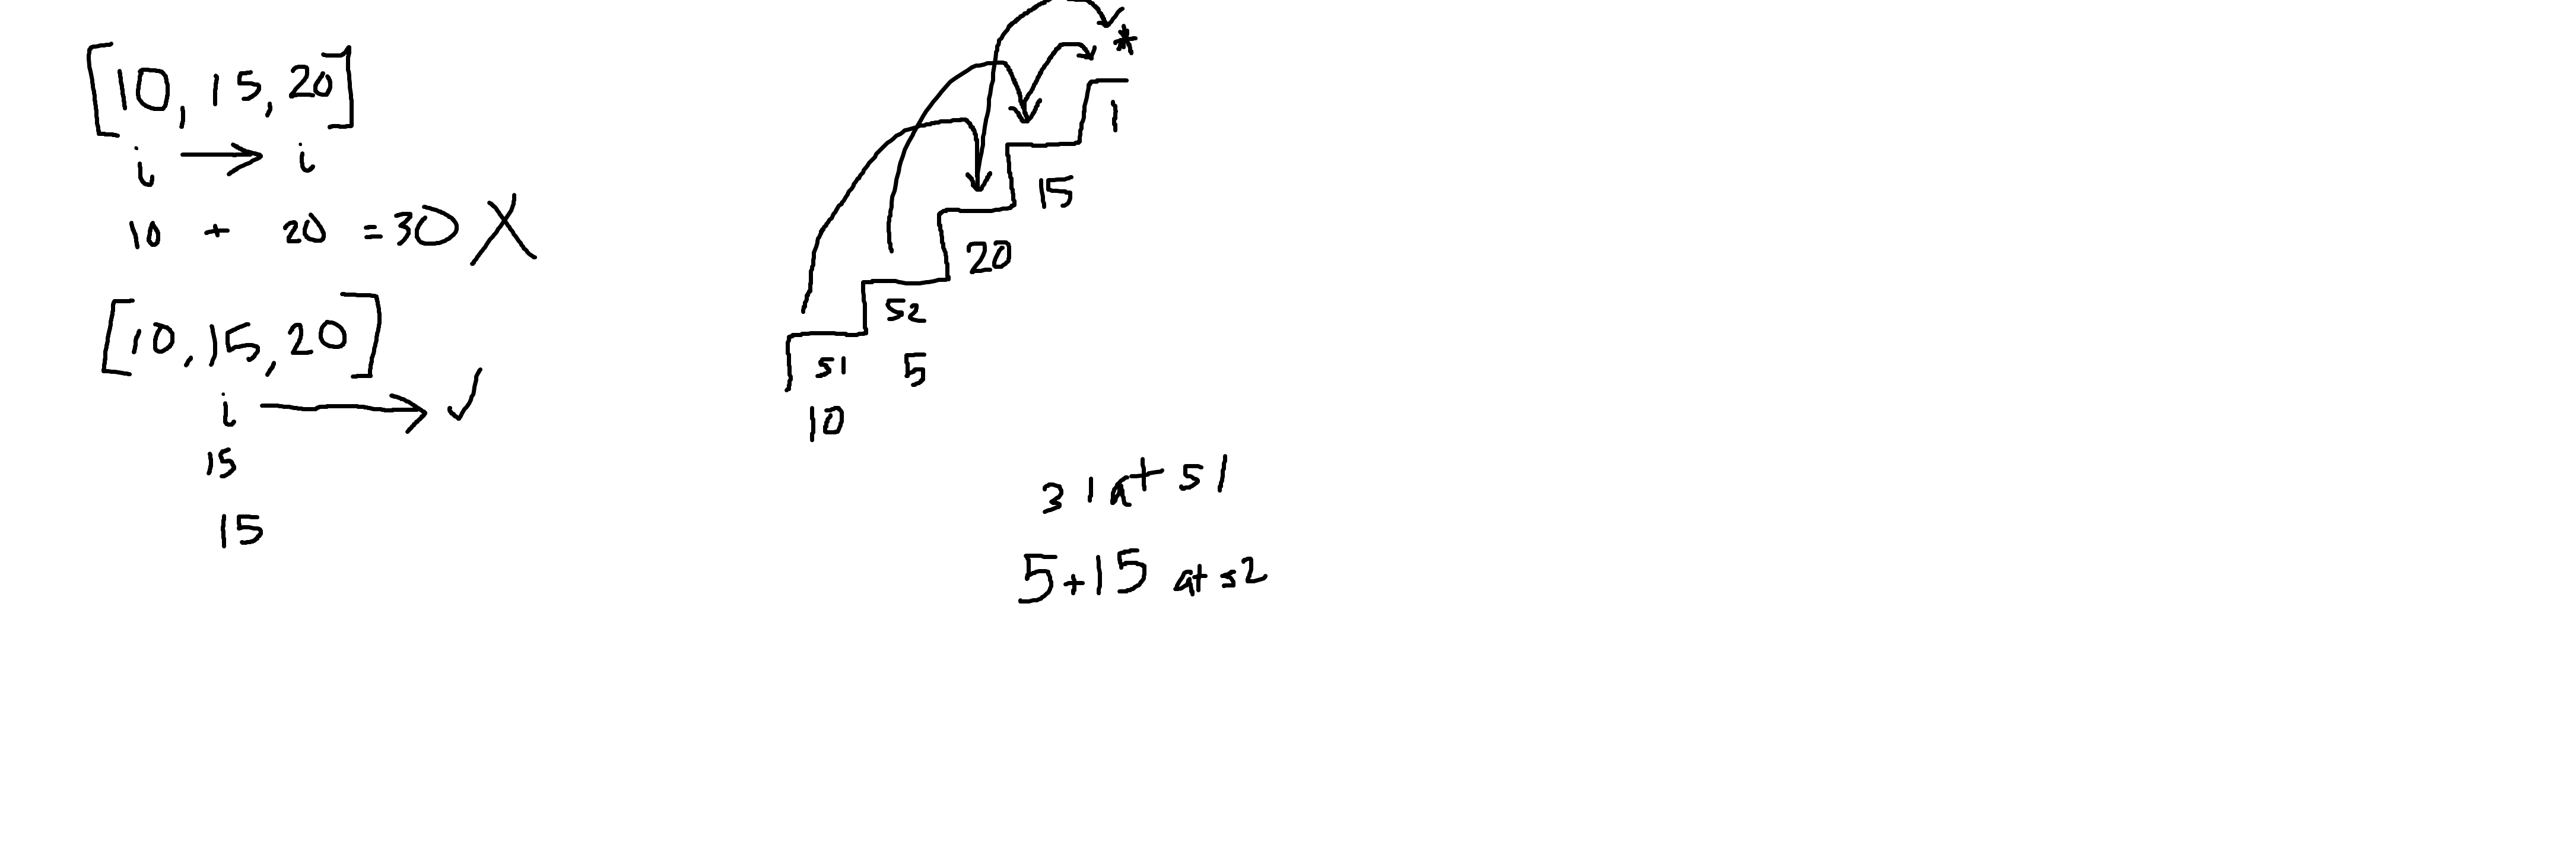 [10, 15, 20]
i → i
10 + 20 = 30 X
[10, 15, 20]
i → ✓
15
15
*
1
15
20
52
51 5
10
31 at 51
5+15 at s2